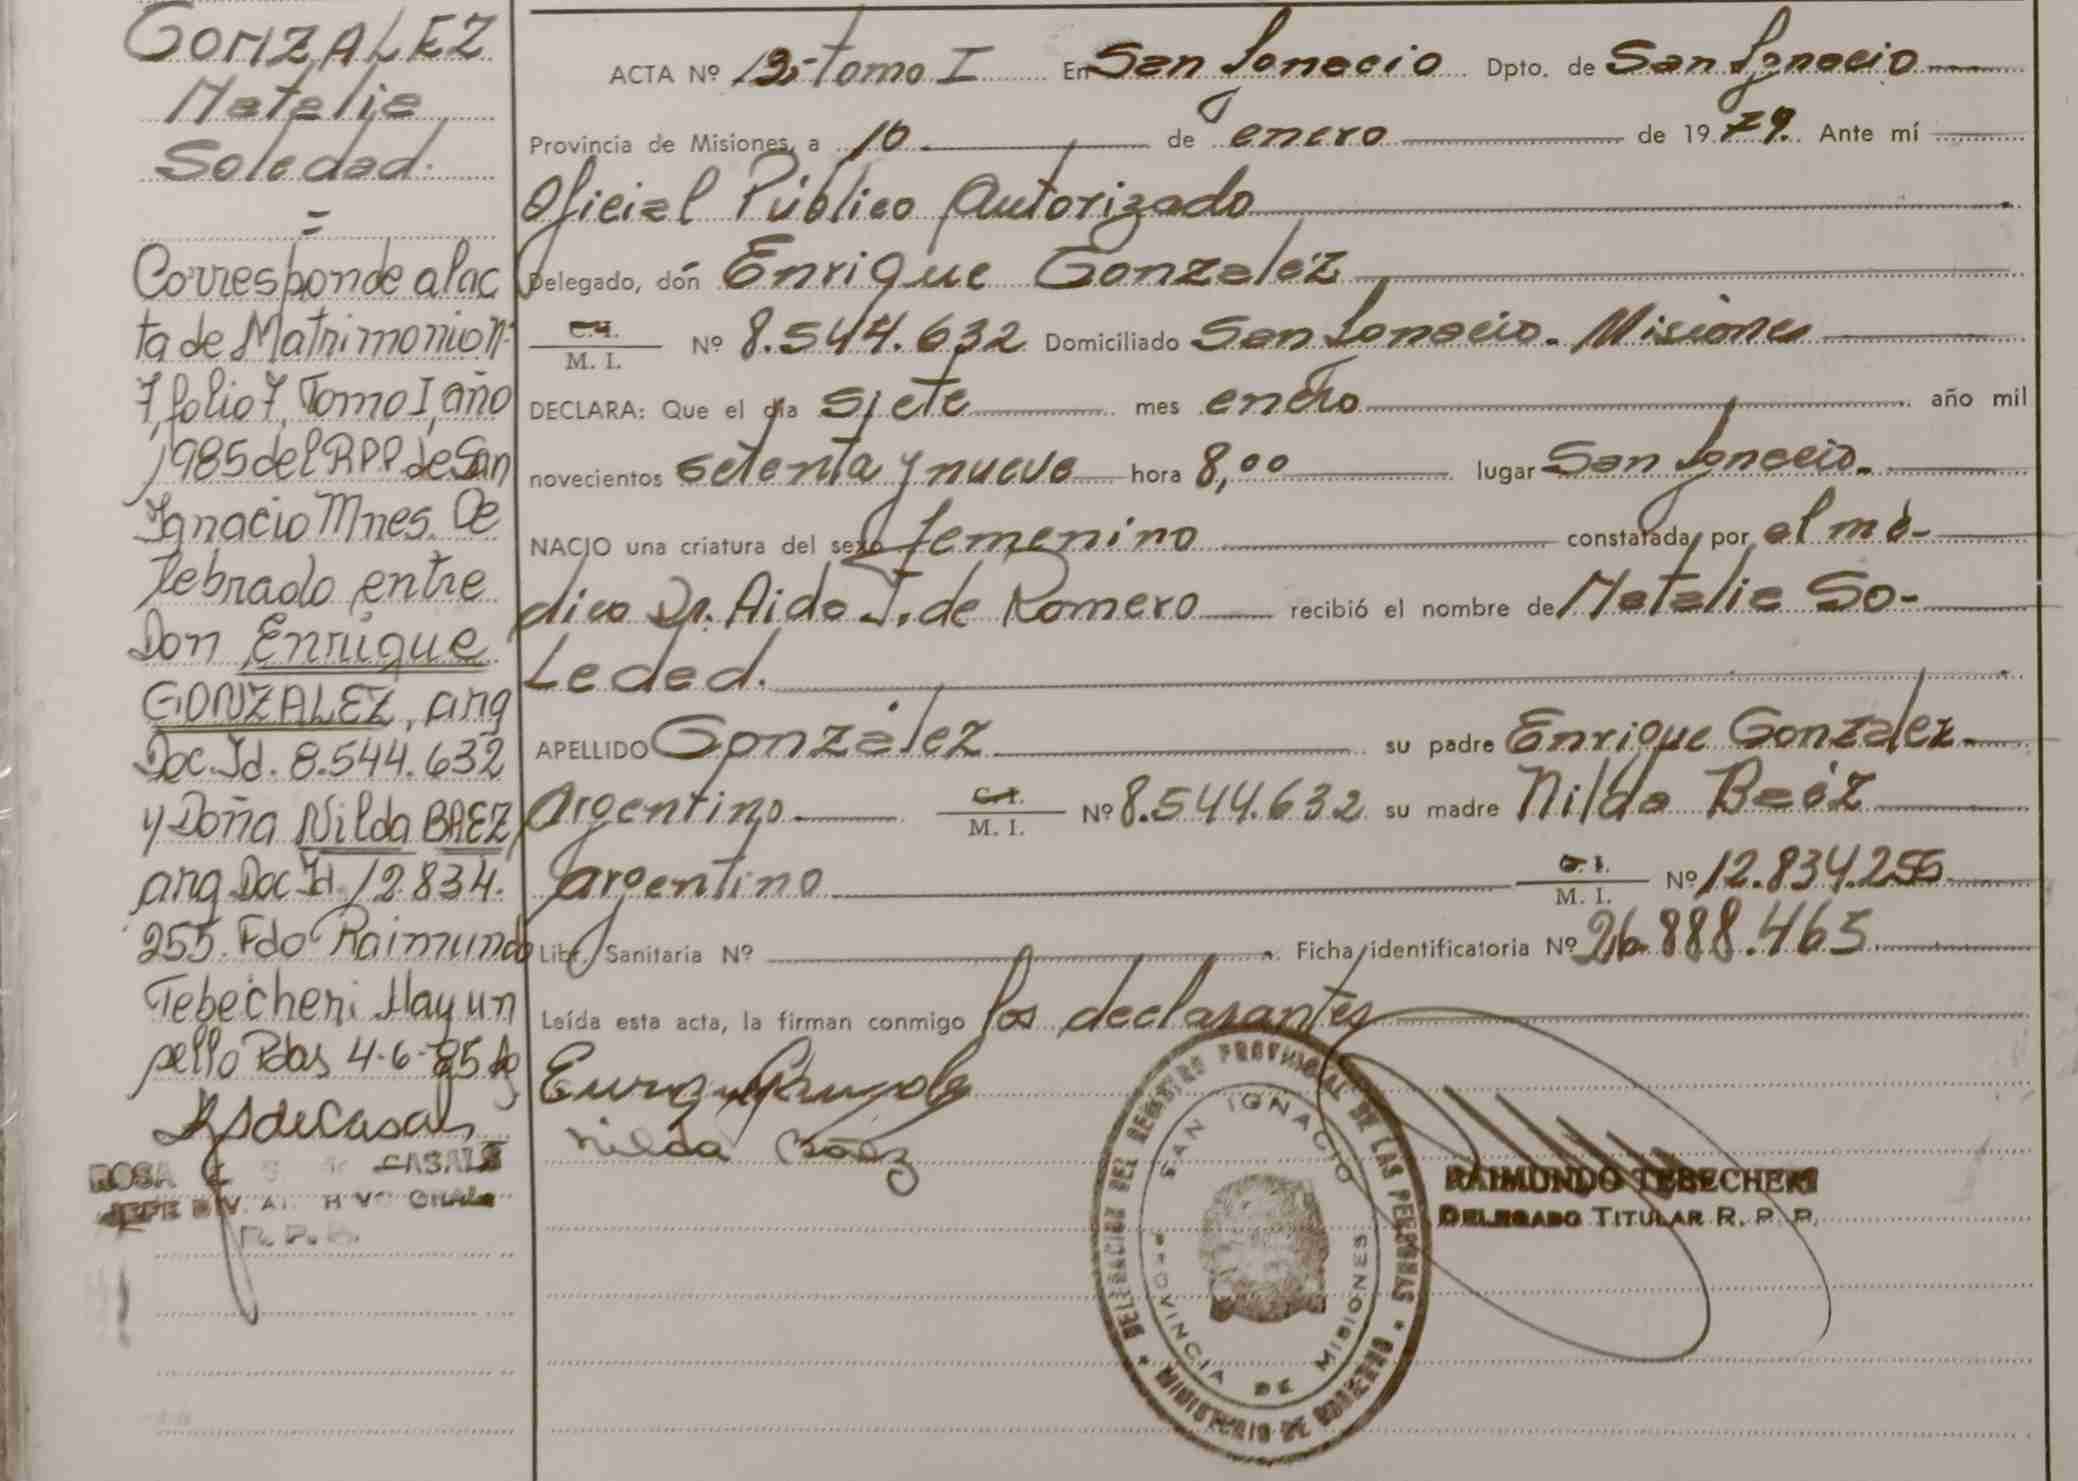 GONZALEZ
Natalia
Soledad.
=
Corresponde al ac
ta de Matrimonio Nº
7, folio 7, Tomo I, año
1985 del R.P.P. de San
Ignacio Mnes. Ce
lebrado entre
Don Enrique
GONZALEZ, arg
Doc. Id. 8.544.632
y Doña Nilda BAEZ,
arg Doc Id. 12.834.
255. Fdo Raimundo
Tebecheri Hay un
sello Pdas 4-6-85
ROSA CASALS
JEFE DIV.
R.P.P.
ACTA Nº 13 - tomo I En San Ignacio Dpto. de San Ignacio
Provincia de Misiones, a 10 de enero de 1979. Ante mí
Oficial Público Autorizado
Delegado, don Enrique Gonzalez
C.I.
M. I. Nº 8.544.632 Domiciliado San Ignacio. Misiones
DECLARA: Que el día siete mes enero año mil
novecientos setenta y nueve hora 8,00 lugar San Ignacio.
NACIO una criatura del sexo femenino constatada por el mé-
dico Dr. Aido J. de Romero recibió el nombre de Natalia So-
ledad.
APELLIDO González su padre Enrique Gonzalez
Argentino C.I.
M. I. Nº 8.544.632 su madre Nilda Baéz
argentino C.I.
M. I. Nº 12.834.255
Libr. Sanitaria Nº Ficha identificatoria Nº 26.888.465
Leída esta acta, la firman conmigo los declarantes
Nilda Báez
DELEGACION DEL REGISTRO PROVINCIAL DE LAS PERSONAS
* MINISTERIO DE GOBIERNO *
SAN IGNACIO
PROVINCIA DE MISIONES
RAIMUNDO TEBECHERI
DELEGADO TITULAR R. P. P.